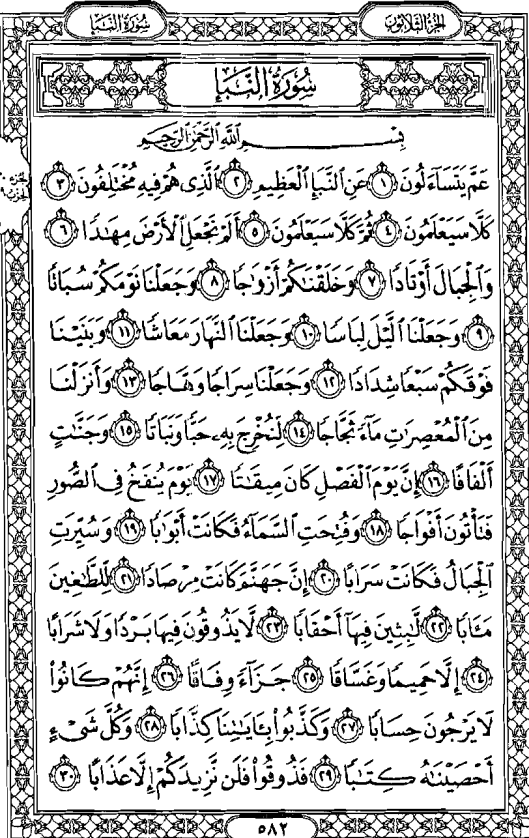 سُورَةُ النَّبَإِ
الجُزْءُ الثَّلَاثُونَ
سُورَةُ النَّبَإِ
بِسْمِ اللَّهِ الرَّحْمَٰنِ الرَّحِيمِ
عَمَّ يَتَسَآءَلُونَ ١ عَنِ النَّبَإِ الْعَظِيمِ ٢ الَّذِى هُمْ فِيهِ مُخْتَلِفُونَ ٣
كَلَّا سَيَعْلَمُونَ ٤ ثُمَّ كَلَّا سَيَعْلَمُونَ ٥ أَلَمْ نَجْعَلِ الْأَرْضَ مِهَٰدًا ٦
وَالْجِبَالَ أَوْتَادًا ٧ وَخَلَقْنَٰكُمْ أَزْوَٰجًا ٨ وَجَعَلْنَا نَوْمَكُمْ سُبَاتًا
٩ وَجَعَلْنَا الَّيْلَ لِبَاسًا ١٠ وَجَعَلْنَا النَّهَارَ مَعَاشًا ١١ وَبَنَيْنَا
فَوْقَكُمْ سَبْعًا شِدَادًا ١٢ وَجَعَلْنَا سِرَاجًا وَهَّاجًا ١٣ وَأَنزَلْنَا
مِنَ الْمُعْصِرَٰتِ مَآءً ثَجَّاجًا ١٤ لِّنُخْرِجَ بِهِۦ حَبًّا وَنَبَاتًا ١٥ وَجَنَّٰتٍ
أَلْفَافًا ١٦ إِنَّ يَوْمَ الْفَصْلِ كَانَ مِيقَٰتًا ١٧ يَوْمَ يُنفَخُ فِى الصُّورِ
فَتَأْتُونَ أَفْوَاجًا ١٨ وَفُتِحَتِ السَّمَآءُ فَكَانَتْ أَبْوَٰبًا ١٩ وَسُيِّرَتِ
الْجِبَالُ فَكَانَتْ سَرَابًا ٢٠ إِنَّ جَهَنَّمَ كَانَتْ مِرْصَادًا ٢١ لِّلطَّٰغِينَ
مَـَٔابًا ٢٢ لَّٰبِثِينَ فِيهَآ أَحْقَابًا ٢٣ لَّا يَذُوقُونَ فِيهَا بَرْدًا وَلَا شَرَابًا
٢٤ إِلَّا حَمِيمًا وَغَسَّاقًا ٢٥ جَزَآءً وِفَاقًا ٢٦ إِنَّهُمْ كَانُوا۟
لَا يَرْجُونَ حِسَابًا ٢٧ وَكَذَّبُوا۟ بِـَٔايَٰتِنَا كِذَّابًا ٢٨ وَكُلَّ شَىْءٍ
أَحْصَيْنَٰهُ كِتَٰبًا ٢٩ فَذُوقُوا۟ فَلَن نَّزِيدَكُمْ إِلَّا عَذَابًا ٣٠
٥٨٢